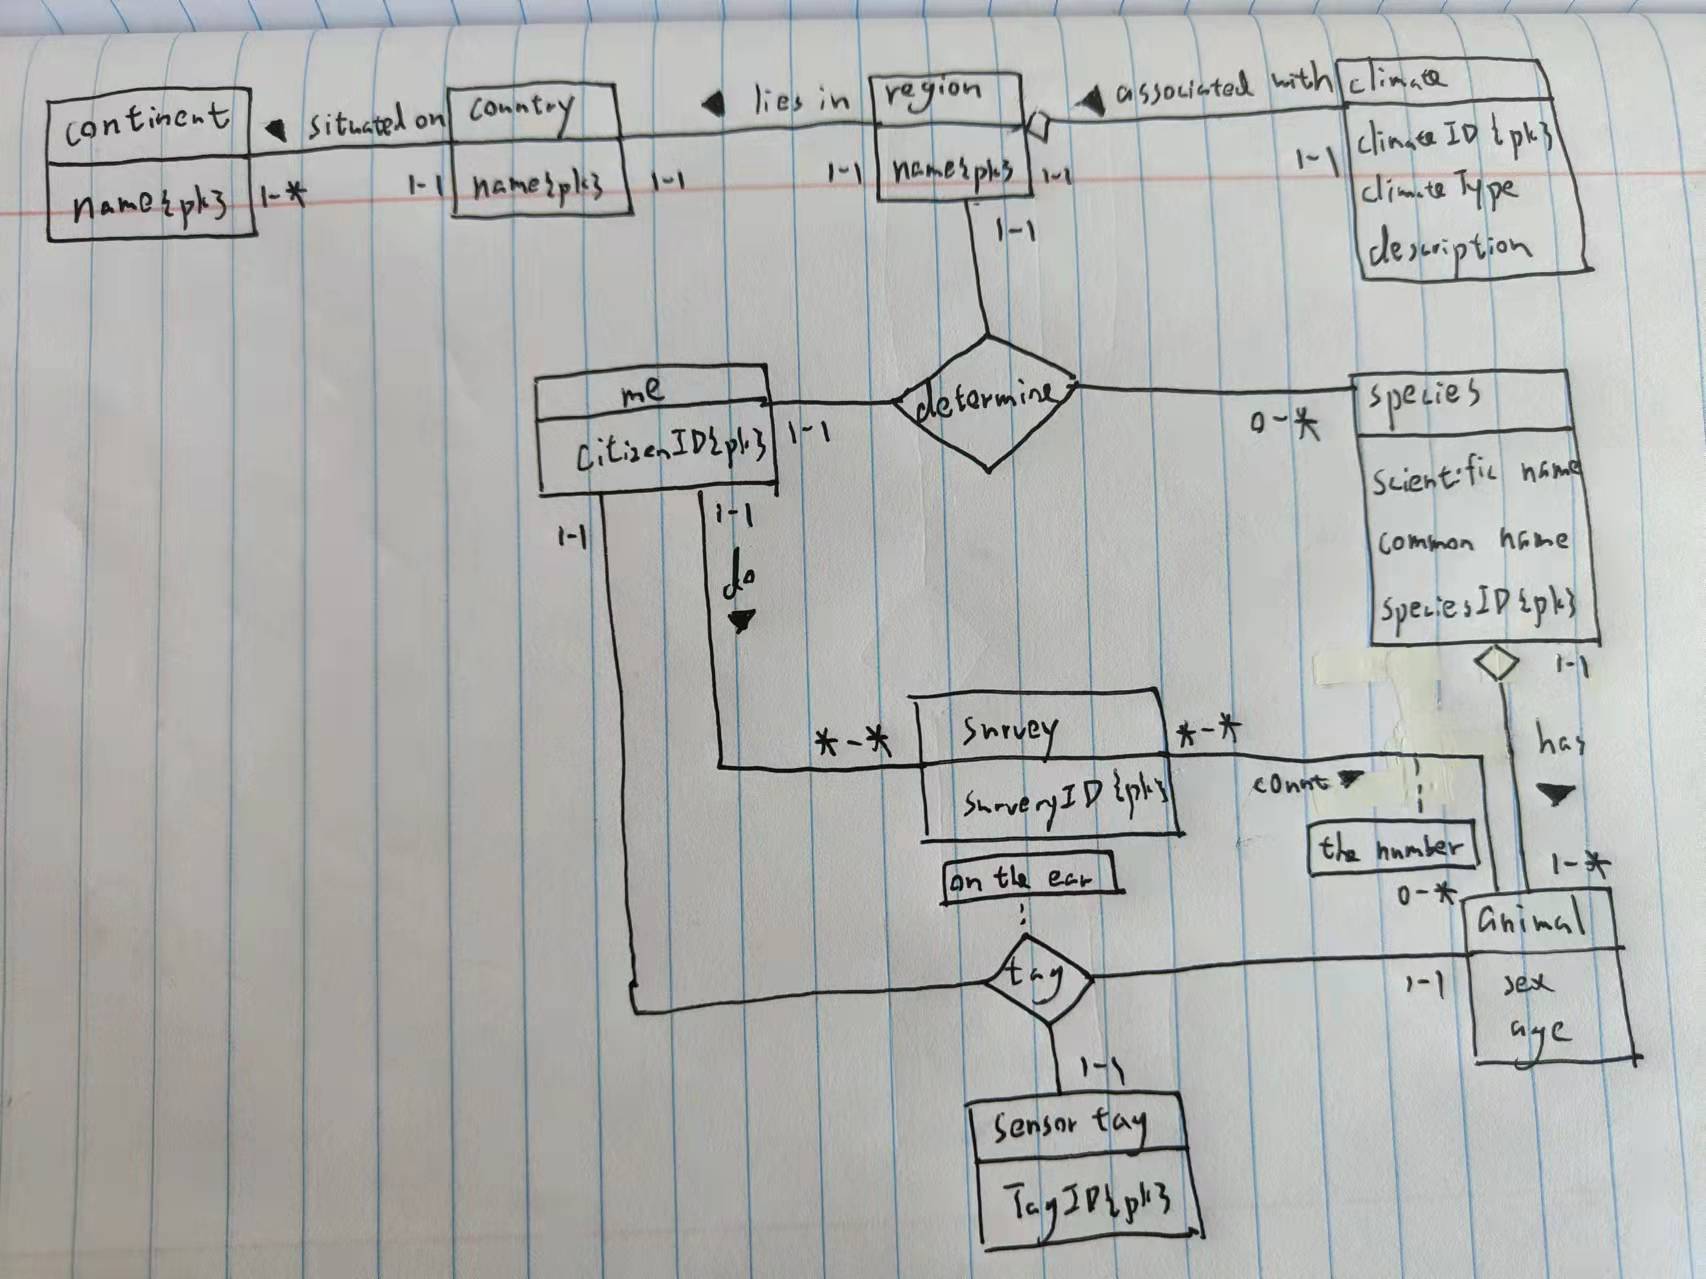 continent
name{pk}
◀ situated on
1-*
1-1
country
name{pk}
◀ lies in
1-1
1-1
region
name{pk}
◀ associated with
1-1
1-1
climate
climateID{pk}
climateType
description
1-1
me
citizenID{pk}
1-1
determine
0-*
species
scientific name
common name
speciesID{pk}
1-1
1-1
do
▼
1-1
has
▼
1-*
*-*
survey
surveryID{pk}
*-*
count ▶
the number
0-*
on the ear
tag
animal
sex
age
1-1
1-1
sensor tag
TagID{pk}